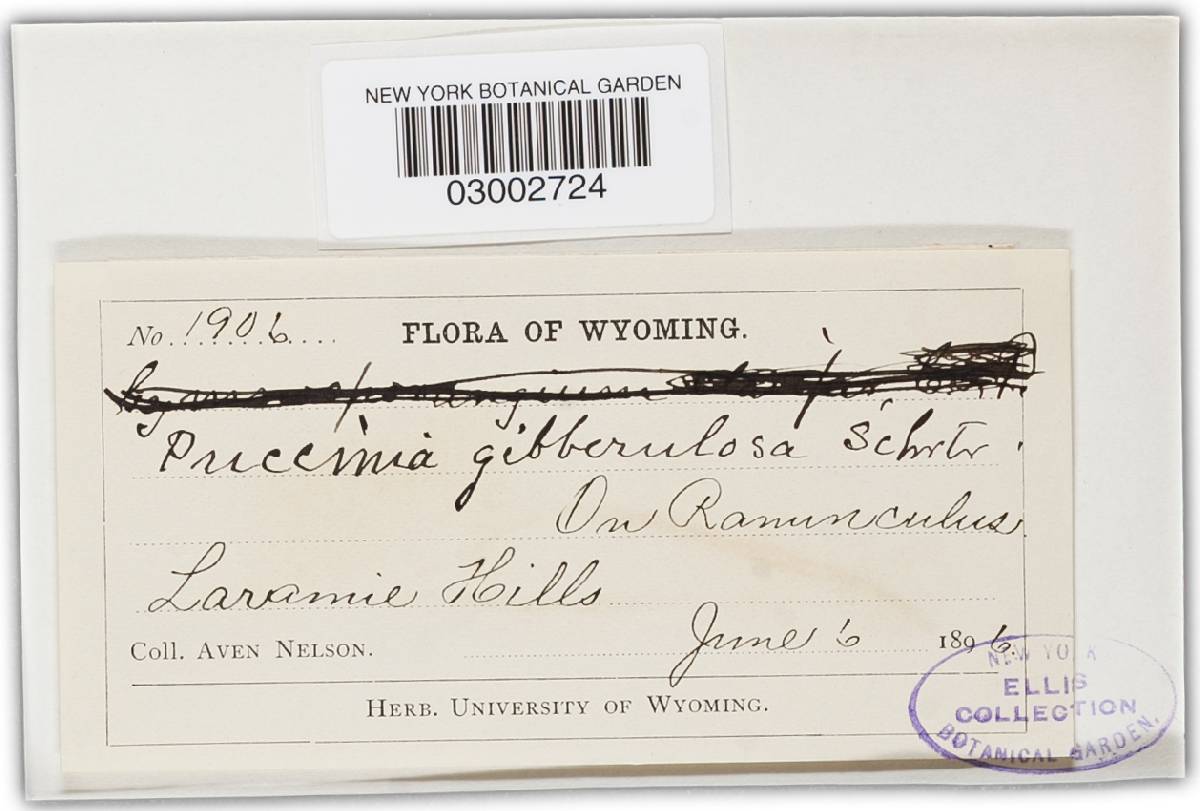 NEW YORK BOTANICAL GARDEN
03002724
No. 1906
FLORA OF WYOMING.
Puccinia gibberulosa Schrtr.
On Ranunculus
Laramie Hills
Coll. AVEN NELSON. June 6 1896.
HERB. UNIVERSITY OF WYOMING.
NEW YORK
ELLIS
COLLECTION
BOTANICAL GARDEN.